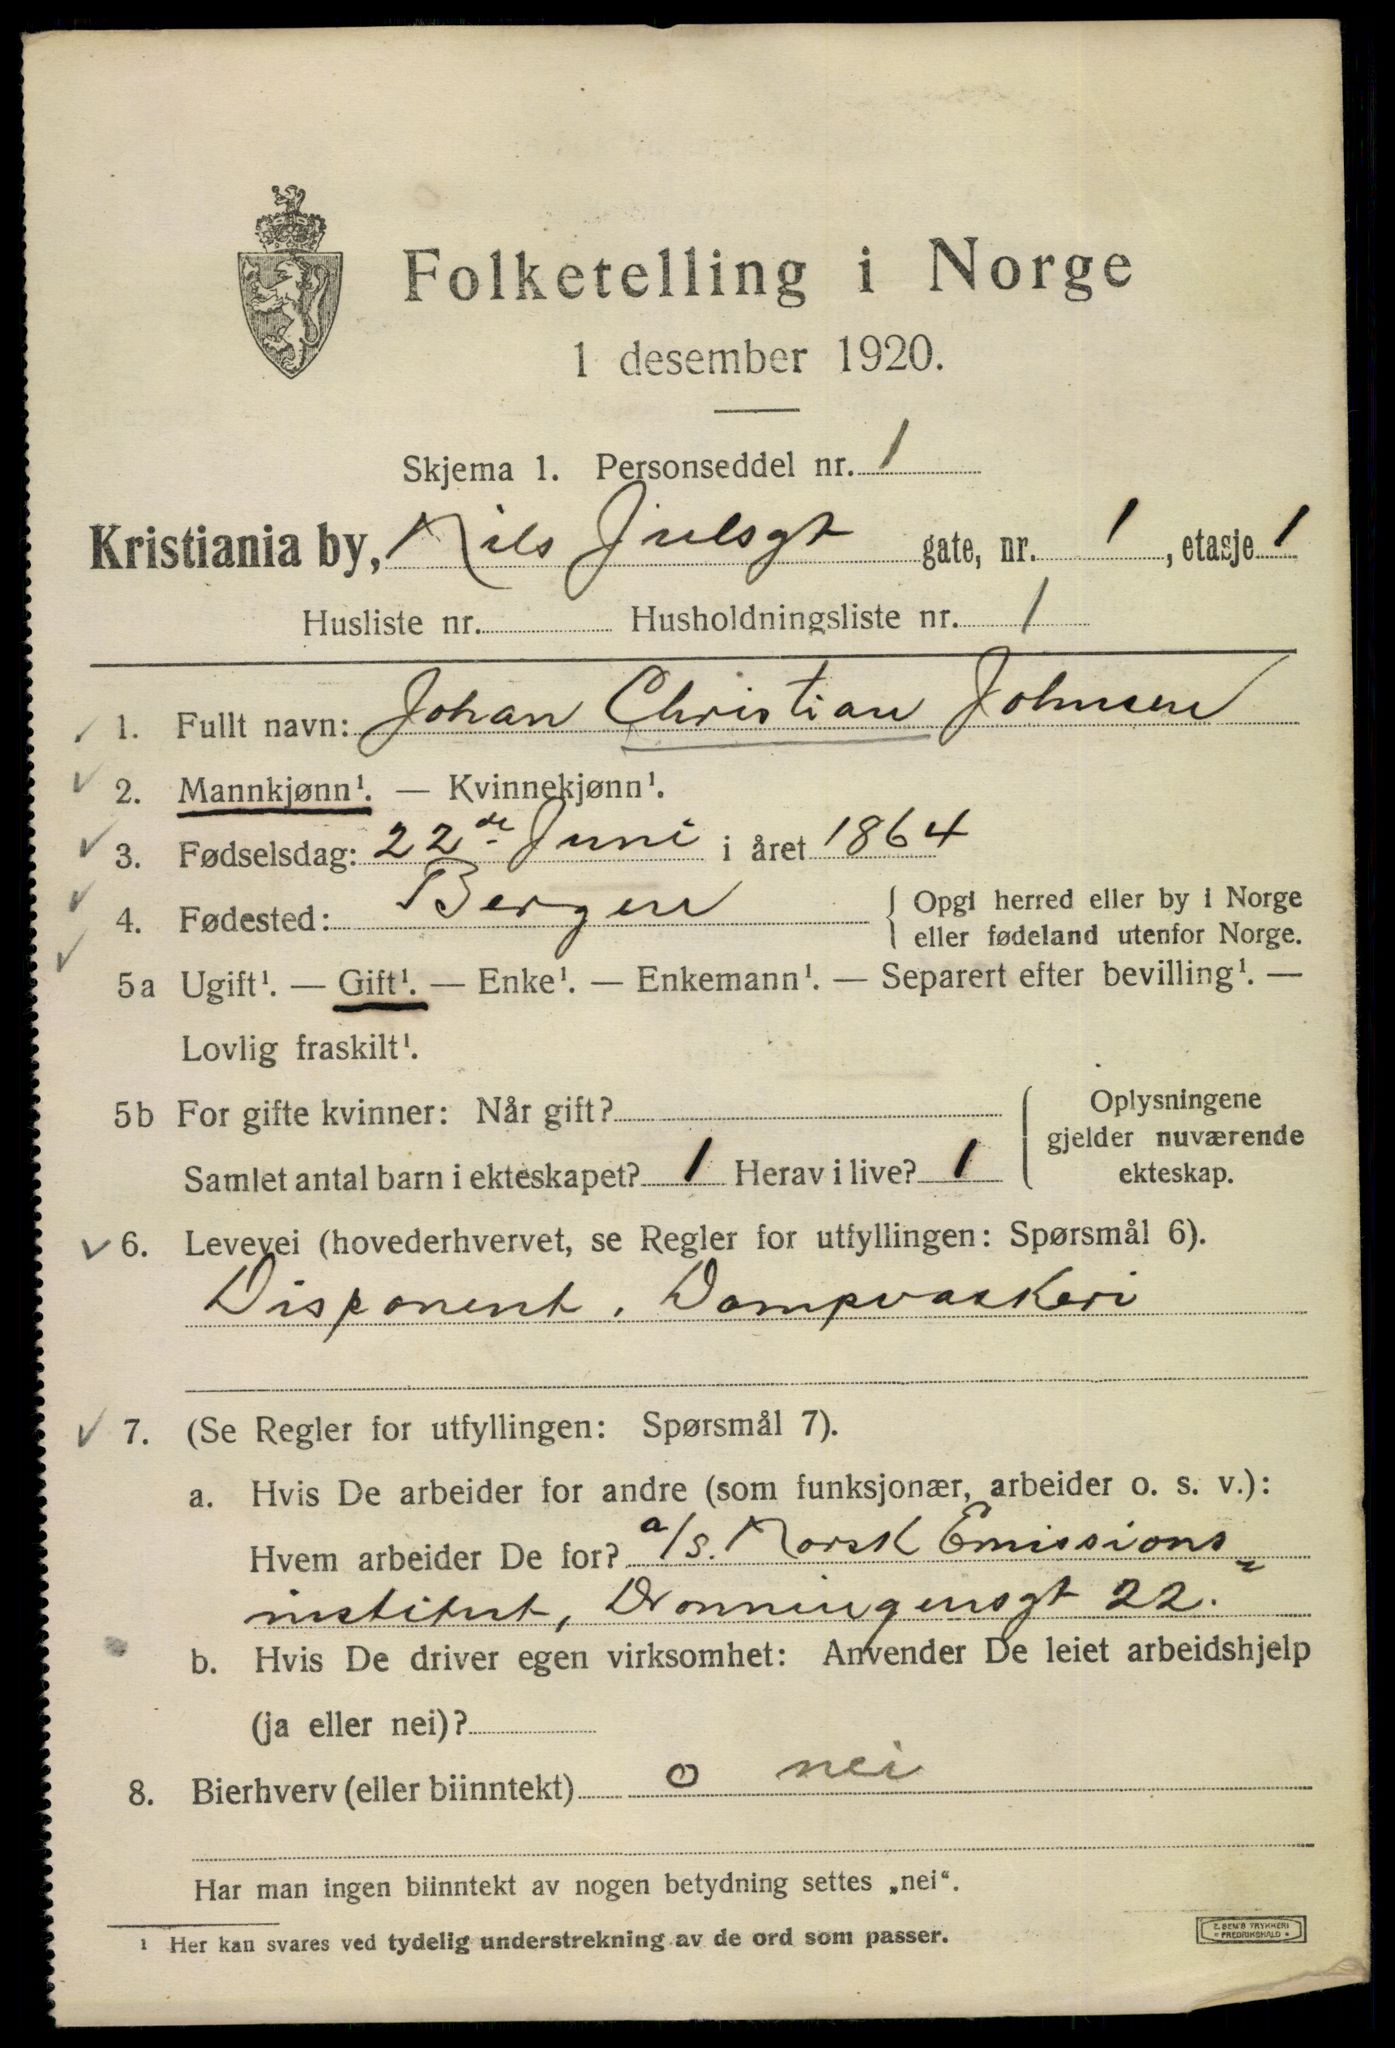 Folketelling i Norge
1 desember 1920.
Skjema 1. Personseddel nr. 1
Kristiania by, Nils Julsgt gate, nr. 1, etasje 1
Husliste nr. Husholdningsliste nr. 1
1. Fullt navn: Johan Christian Johnsen
2. Mannkjønn¹. — Kvinnekjønn¹.
3. Fødselsdag: 22de Juni i året 1864
4. Fødested: Bergen { Opgi herred eller by i Norge
eller fødeland utenfor Norge.
5a Ugift¹. — Gift¹. — Enke¹. — Enkemann¹. — Separert efter bevilling¹. —
Lovlig fraskilt¹.
5b For gifte kvinner: Når gift? { Oplysningene
gjelder nuværende
ekteskap.
Samlet antal barn i ekteskapet? 1 Herav i live? 1
6. Levevei (hovederhvervet, se Regler for utfyllingen: Spørsmål 6).
Disponent, Dampvaskeri
7. (Se Regler for utfyllingen: Spørsmål 7).
a. Hvis De arbeider for andre (som funksjonær, arbeider o. s. v.):
Hvem arbeider De for? a/s. Norsk Emissions=
institut, Dronningensgt 22.
b. Hvis De driver egen virksomhet: Anvender De leiet arbeidshjelp
(ja eller nei)?
8. Bierhverv (eller biinntekt) o nei
Har man ingen biinntekt av nogen betydning settes „nei“.
¹ Her kan svares ved tydelig understrekning av de ord som passer.
E. SEM'S TRYKKERI
FREDRIKSHALD